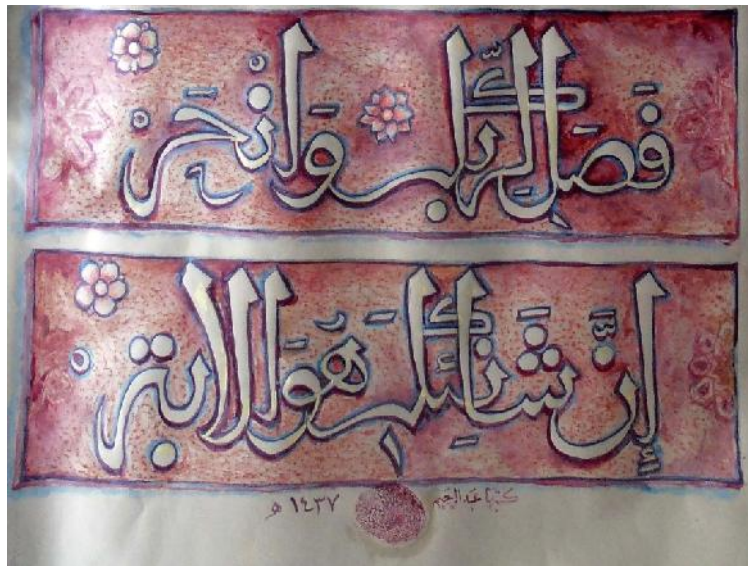 فَصَلِّ لِرَبِّكَ وَانْحَرْ
إِنَّ شَانِئَكَ هُوَ الْأَبْتَرُ
كتبها عبدالرحيم ١٤٣٧ هـ